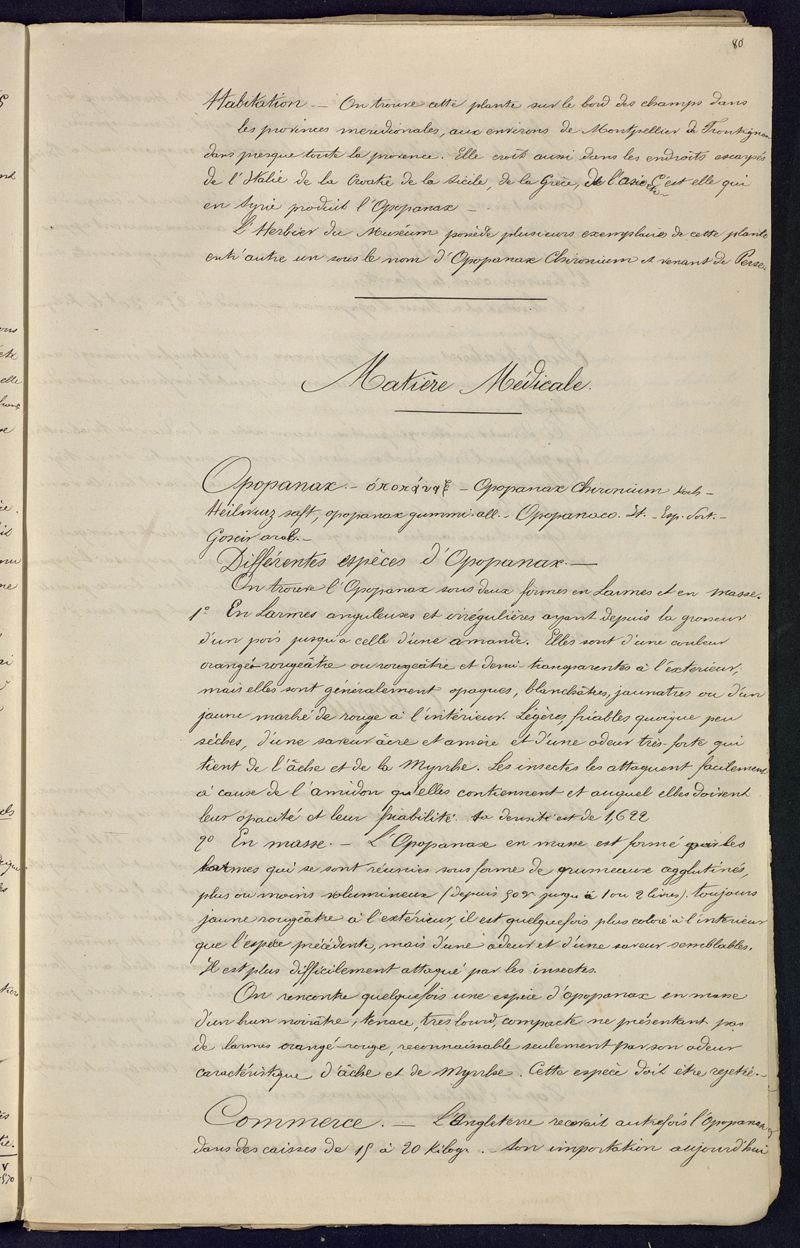 80
Habitation — On trouve cette plante sur le bord des champs dans
les provinces meridionales, aux environs de Montpellier de Frontignan
dans presque toute la provence. Elle croit aussi dans les endroits escarpés
de l'Italie de la Croatie de la Sicile, de la Grèce, de l'asie C'est elle qui
en Syrie produit l'Opopanax —
L'Herbier du Muséum possède plusieurs exemplaires de cette plante
entr'autre un sous le nom d'Opopanax Chironium et venant de Perse
Matière Médicale.
Opopanax. — όποπάναξ — Opopanax Chironium Koch —
Heilwurz saft, opopanax gummi. all. — Opopanaco. It. — Esp. Port. —
arab. —
Différentes espèces d'Opopanax. —
On trouve l'Opopanax sous deux formes en Larmes et en masse.
1º En Larmes anguleuses et irrégulières ayant depuis la grosseur
d'un pois jusqu'a celle d'une amande. Elles sont d'une couleur
orangé-rougeâtre ou rougeâtre et demi-transparentes à l'éxterieur,
mais elles sont généralement opaques, blanchâtres, jaunatres ou d'un
jaune marbré de rouge à l'intérieur. Légères, friables quoique peu
sèches, d'une saveur âcre et amère et d'une odeur très-forte qui
tient de l'âche et de la Myrrhe. Les insectes les attaquent facilement
à cause de l'amidon qu'elles contiennent et auquel elles doivent
leur opacité et leur friabilité. Sa densité est de 1,622
2º En masse. — L'Opopanax en masse est formé par les
larmes qui se sont réunies sous forme de grumeaux agglutinés,
plus ou moins volumineux (depuis 50 gr jusqu'à 1 ou 2 livres). toujours
jaune rougeâtre à l'extérieur, il est quelquefois plus coloré à l'interieur
que l'espèce précédente, mais d'une odeur et d'une saveur semblables.
Il est plus difficilement attaqué par les insectes.
On rencontre quelquefois une espèce d'opopanax en masse
d'un brun noirâtre, tenace, très lourd, compacte ne présentant pas
de larmes orangé-rouge, reconnaissable seulement par son odeur
caractéristique d'âche et de Myrrhe. Cette espèce doit etre rejetée. —
Commerce. — L'Angleterre recevait autrefois l'Opopanax
dans des caisses de 15 à 20 Kilogr. — Son importation aujourd'hui